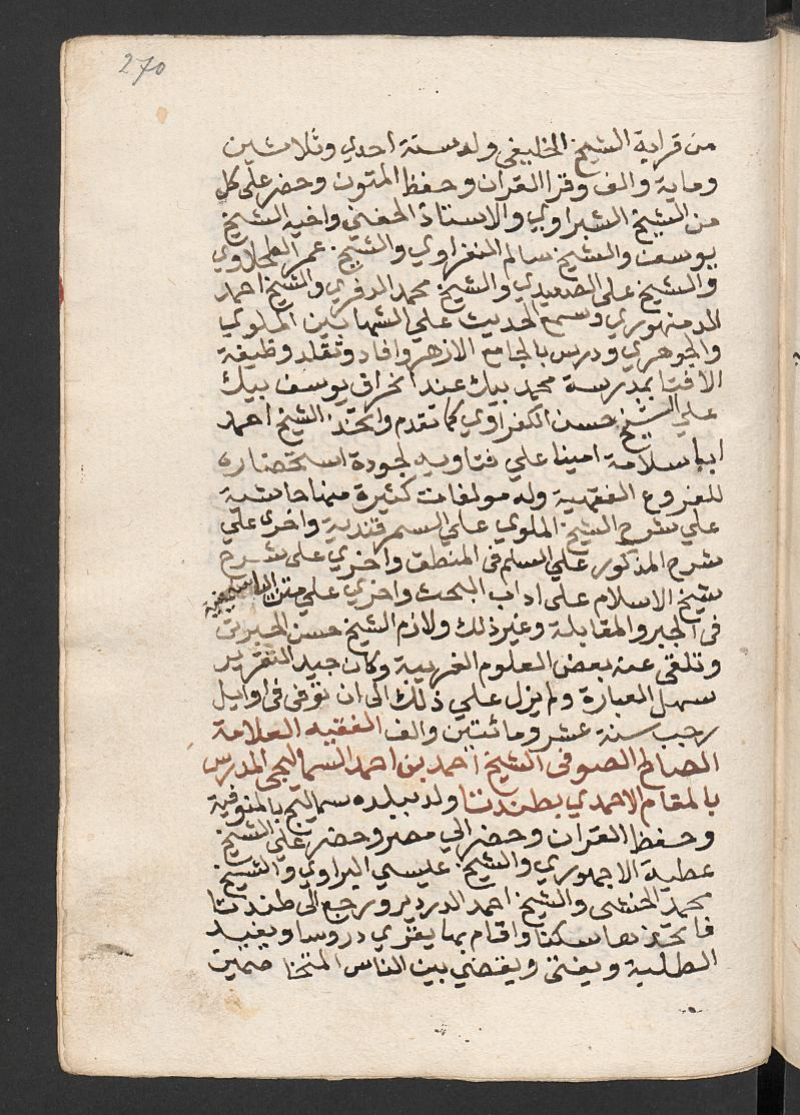 270
من قرابة الشيخ الخليفى ولد سنة احدي وثلاثين
وماية والف وقرا القران وحفظ المتون وحضر على كل
من الشيخ الشبراوي والاستاذ الحفنى واخيه الشيخ
يوسف والشيخ سالم النفراوي والشيخ عمر الطحلاوي
والشيخ على الصعيدي والشيخ محمد الدفري والشيخ احمد
الدمنهوري وسمع الحديث علي الشهابين الملوي
والجوهري ودرس بالجامع الازهر وافاد وتقلد وظيفة
الافتا بمدرسة محمد بيك عند انحراف يوسف بيك
علي الشيخ حسن الكفراوي كما تقدم واتخذ الشيخ احمد
ابا سلامة امينا علي فتاويه لجودة استحضاره
للفروع الفقهية وله مولفات كثيرة منها حاشية
علي شرح الشيخ الملوي علي السمرقندية واخرى علي
شرح المذكور علي السلم فى المنطق واخري على شرح
شيخ الاسلام على اداب البحث واخري علي متن الياسمينية
فى الجبر والمقابلة وغير ذلك ولازم الشيخ حسن الجبرتى
وتلقى عنه بعض العلوم الغريبة وكان جيد التقرير
سهل العبارة ولم يزل علي ذلك الى ان توفى فى اوايل
رجب سنة عشر ومائتين والف الفقيه العلامة
الصالح الصوفى الشيخ احمد بن احمد السماليجى المدرس
بالمقام الاحمدي بطندتا ولد ببلده سماليج بالمنوفية
وحفظ القران وحضر الي مصر وحضر علي الشيخ
عطية الاجهوري والشيخ عليسي البراوي والشيخ
محمد الخشى والشيخ احمد الدردير ورجع الى طندتا
فاتخذها سكنا واقام بها يقري دروسا ويفيد
الطلبة ويفتى ويقضي بين الناس المتخاصمين